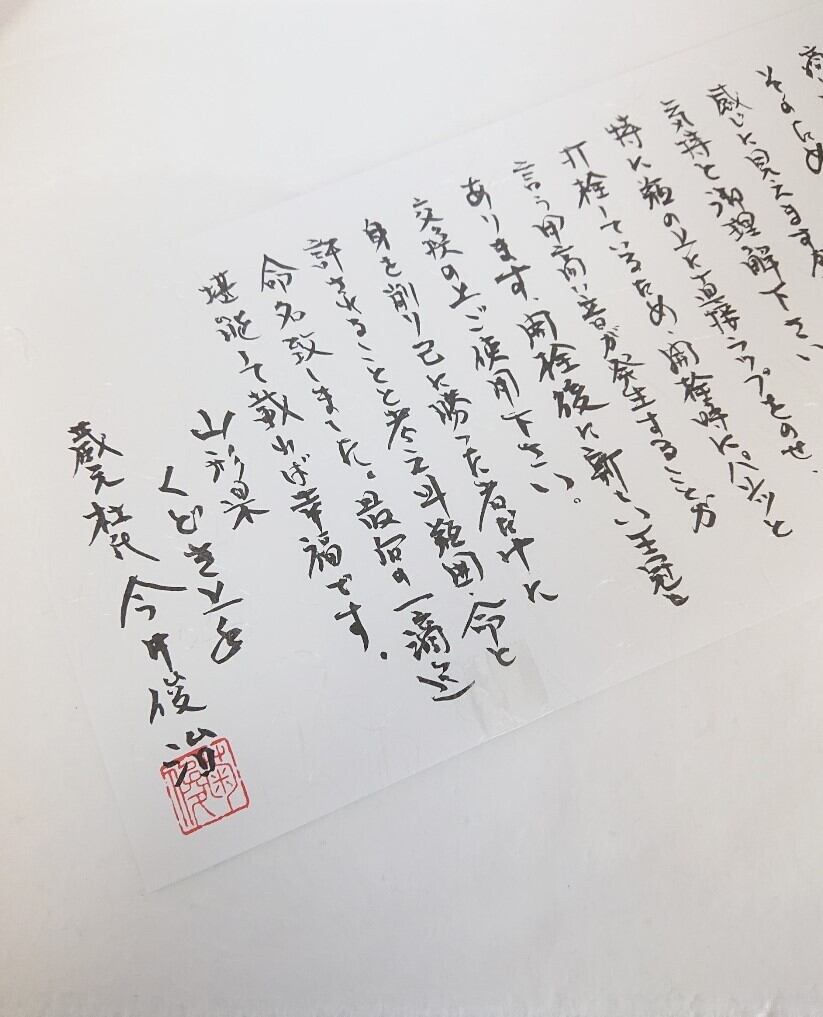 そのため
感じに見えますが
気持と御理解下さい
特に瓶の上に直接ラップをのせ、
打栓しているため、開栓時に"パンッと
言う甲高い音が発生することが
あります、開栓後に新しい王冠と
交換の上ご使用下さい。
身を削り己に勝った者だけに
許されることと考え斗瓶囲、命と
命名致しました。最后の一滴迄
堪能して戴れば幸福です.
山形県
くどき上手
蔵元杜氏 今井俊治